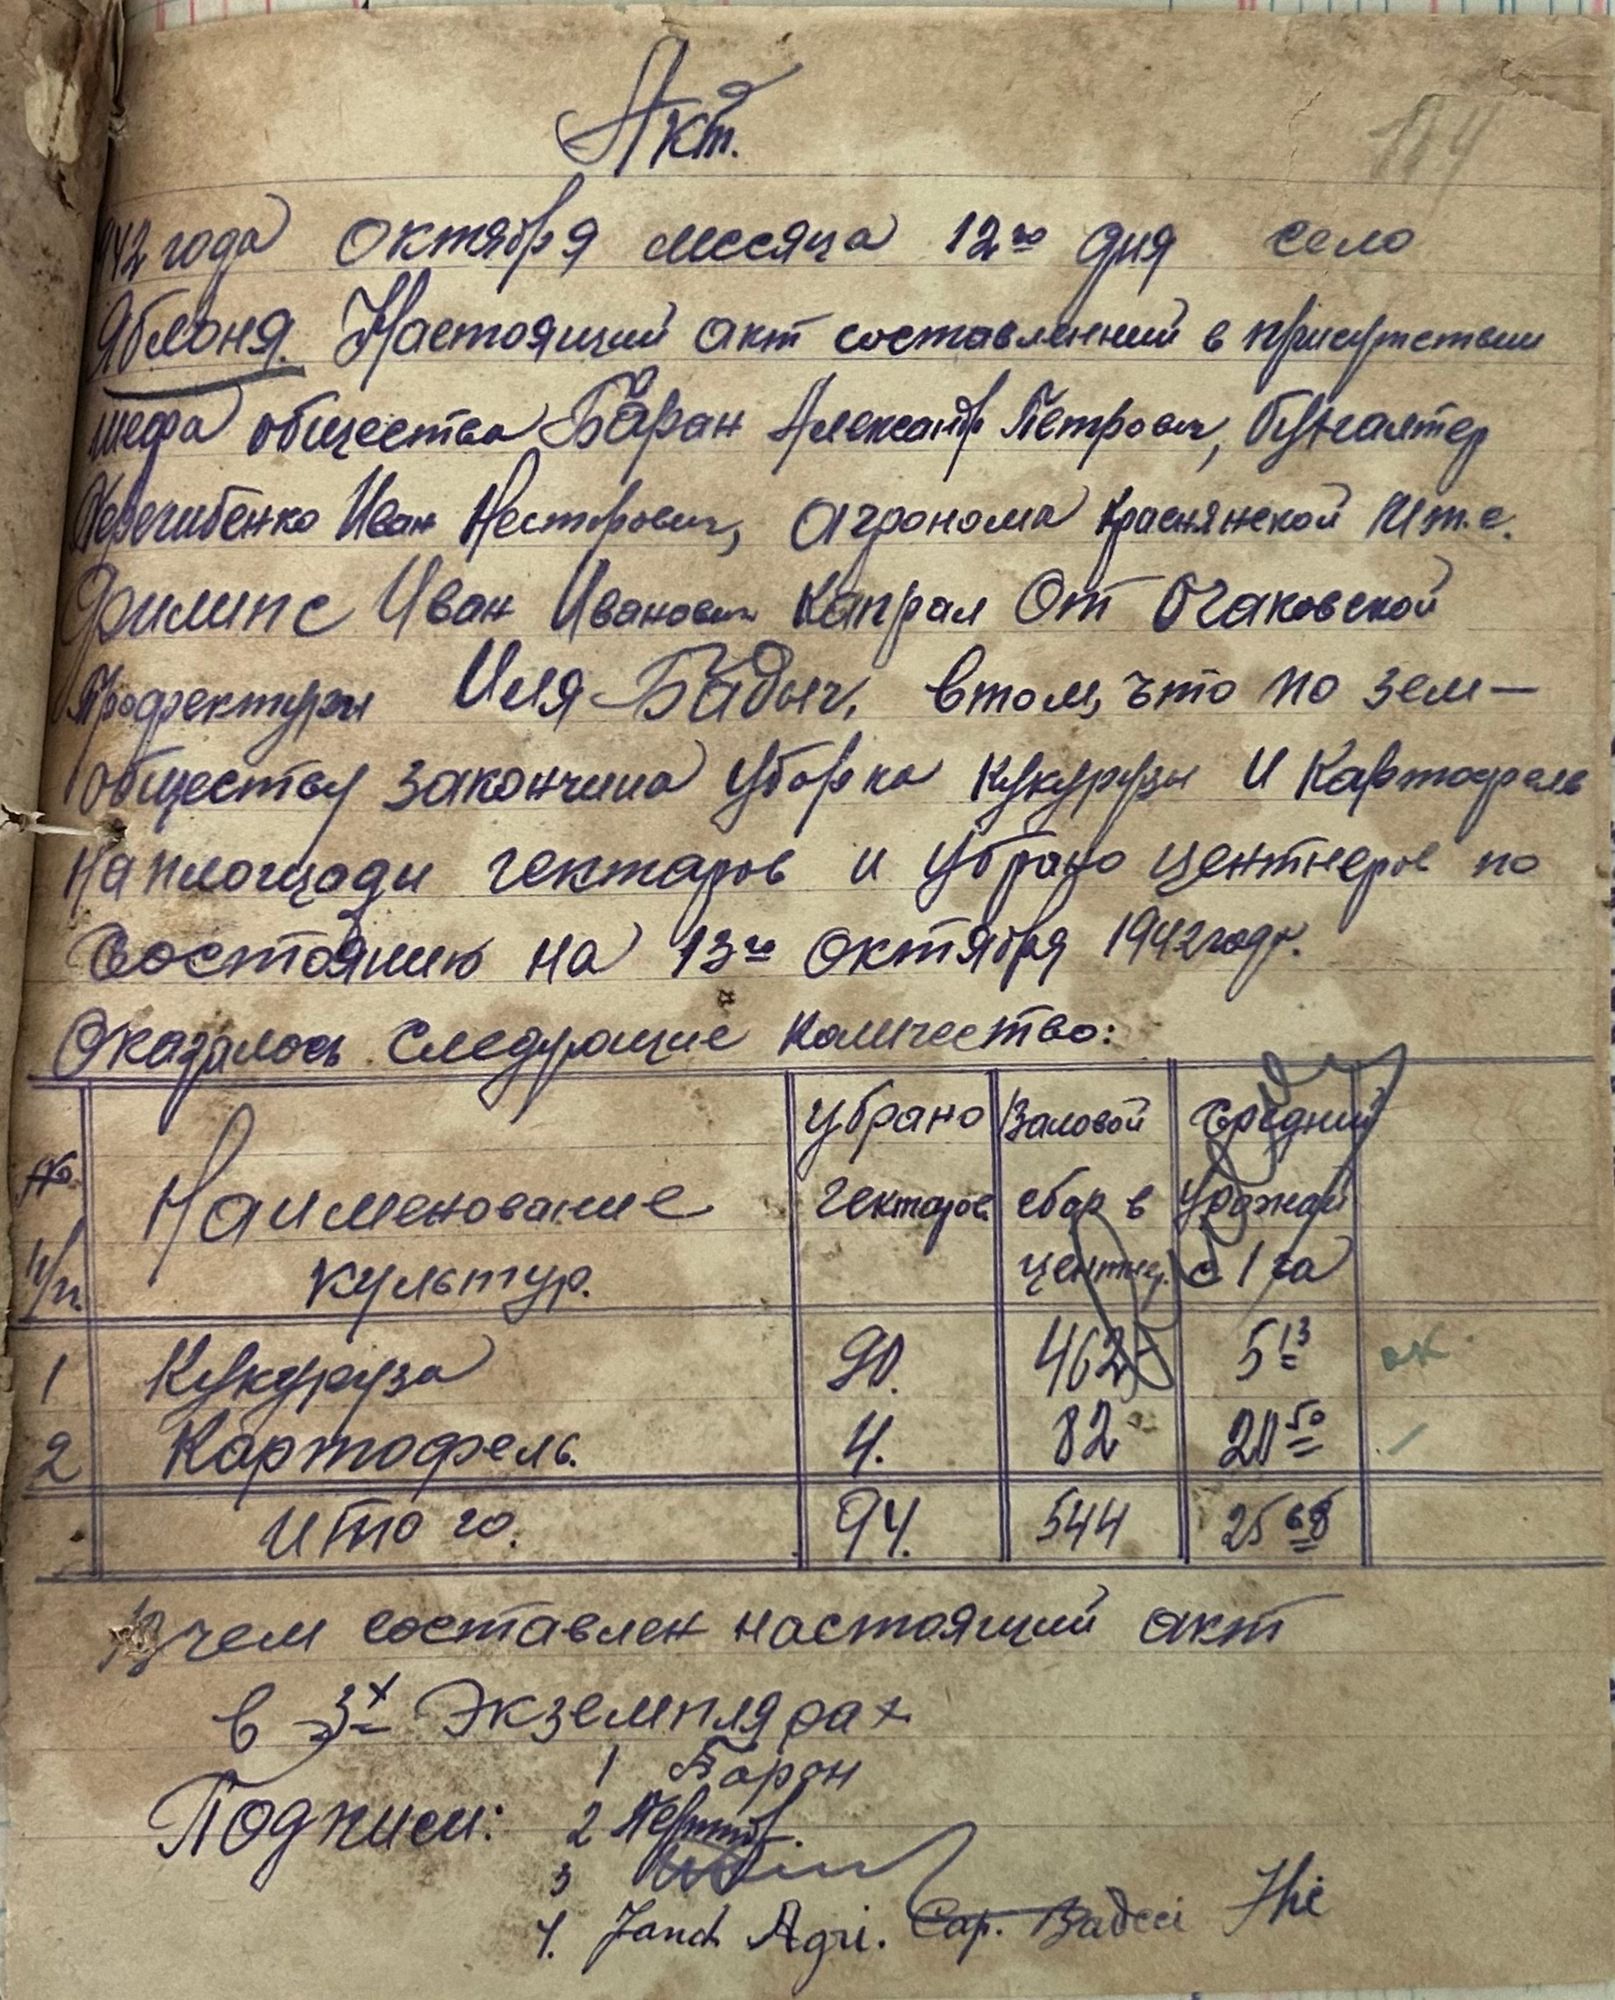 Акт.
184
1942 года Октября месяца 12го дня село
Яблоня. Настоящий акт составлений в присутствии
шефа общества Баран Александр Петрович, бухалтер
Иван Нестерович, агронома Краснянской М.т.с.
Филипс Иван Иванович Капрал От Очаковской
Профектуры Иля Бадыч, в том, что по зем-
обществу закончина уборка кукурузы и картофель
На площади гектаров и убрано центнеров по
Состоянию на 13го Октября 1942 года.
Оказалось следующие количество:
№ п/п. Наименование культур. Убрано гектаров Валовой сбор в центнер. Средний урожай с 1 га
1 Кукуруза 90. 462 5 13 ок
2 Картофель. 4. 82 20 50
Итого. 94. 544 25 68
чем составлен настоящий акт
в 3х Экземплярах
Подписи: 1 Баран
2
3
4. Agri. Cap. Ilie